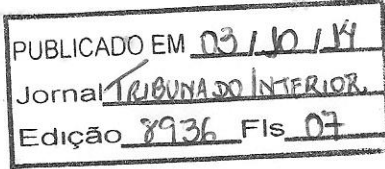 PUBLICADO EM 03/10/14
Jornal TRIBUNA DO INTERIOR
Edição 8936 Fls 07